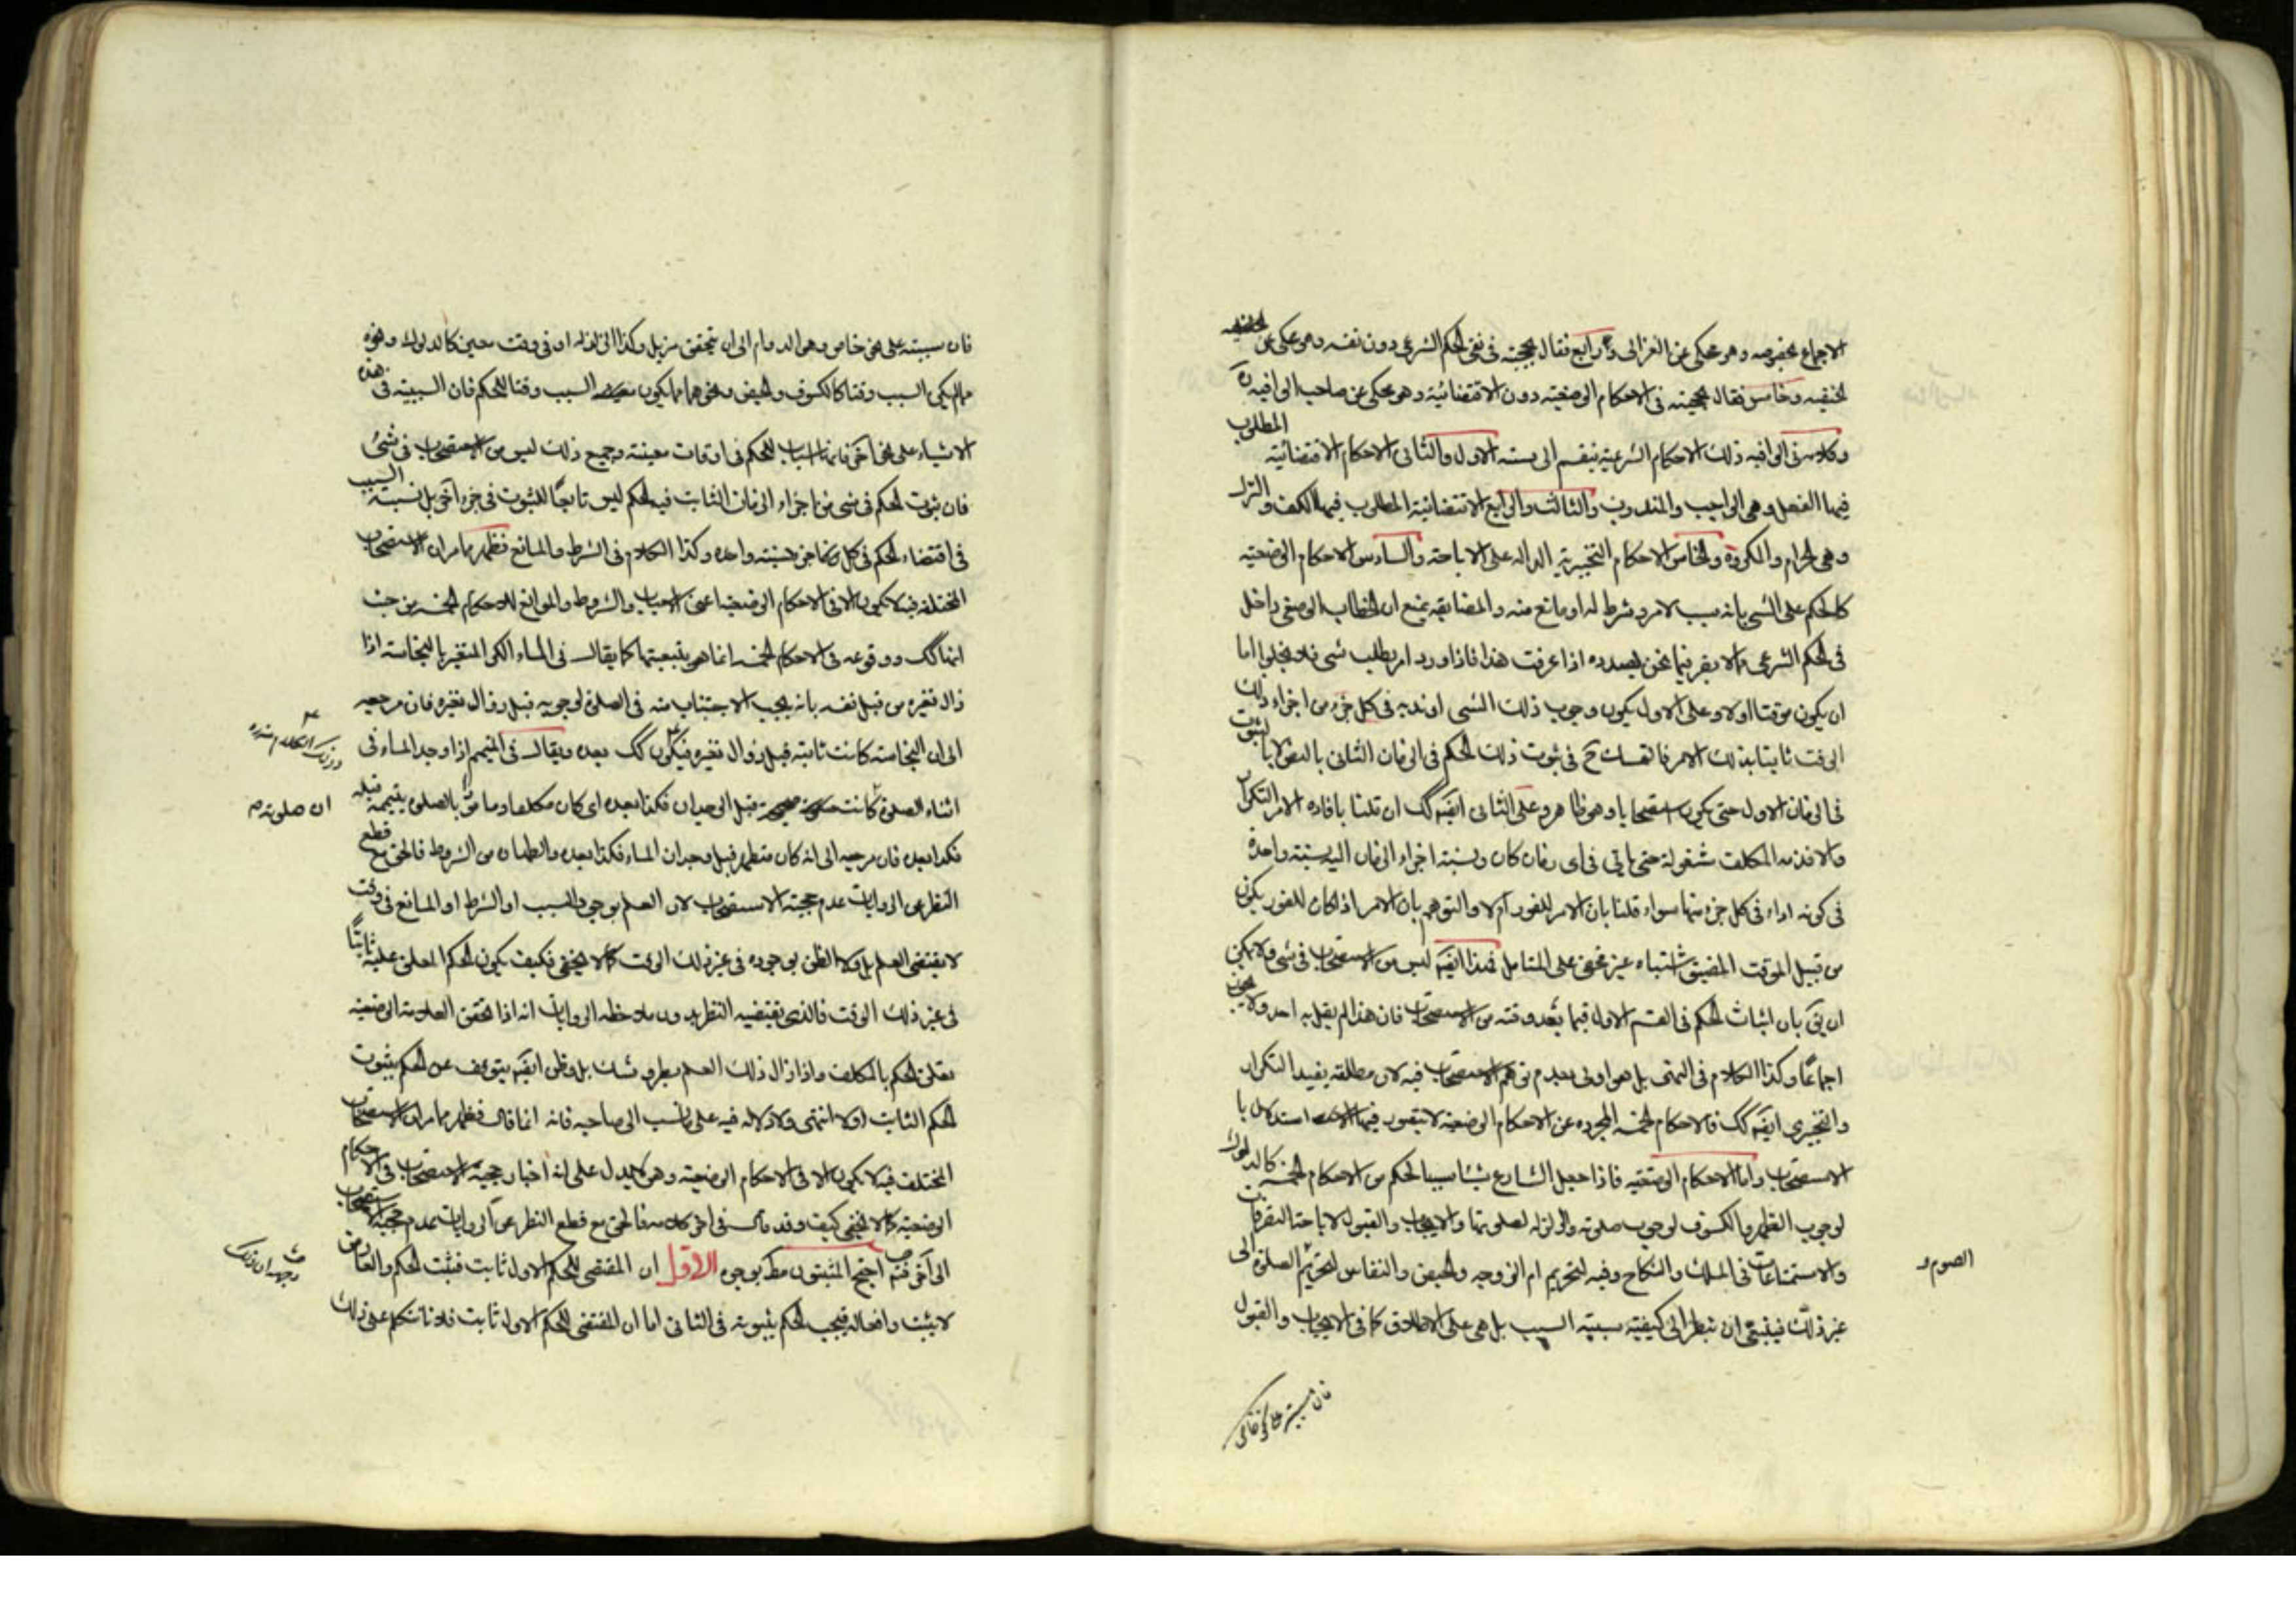 الاجماع بخصوصه وهو محكي عن الغزالي ورابع فقال بحجيته في نفي الحكم الشرعي دون نفسه وهو محكي عن
الحنفيه وخامس فقال بحجيته في الاحكام الوضعيه دون الاقتضائية وهو محكي عن صاحب الوافيه
وكلامه في الوافيه ذلك الاحكام الشرعية ينقسم الى سته الاول والثاني الاحكام الاقتضائية المطلوب
فيها الفعل وهي الواجب والمندوب والثالث والرابع الاقتضائية المطلوب فيها الكف والترك
وهي الحرام والمكروه والخامس الاحكام التخييرية الداله على الاباحة والسادس الاحكام الوضعيه
كالحكم على الشي بانه سبب لامر وشرط له او مانع منه والمضايقه بمنع ان الخطاب الوضعي داخل
في الحكم الشرعي مما لا يضر فيما نحن بصدده اذا عرفت هذا فاذا ورد امر بطلب شي فلا يخلوا اما
ان يكون موقتا او لا وعلى الاول يكون وجوب ذلك الشي او ندبه في كل جزء من اجزاء ذلك
الوقت ثابتا بذلك الامر فالتمسك ح في ثبوت ذلك الحكم في الزمان الثاني بالنص لا بالثبوت
في الزمان الاول حتى يكون استصحابا وهو ظاهر وعلى الثاني ايضه كك ان قلنا بافاده الامر التكرار
والا فذمه المكلف مشغولة حتى ياتي في اي زمان كان ونسبة اجزاء الزمان اليه نسبة واحدة
في كونه اداء في كل جزء منها سواء قلنا بان الامر للفور ام لا والتوهم بان الامر اذا كان للفور يكون
من قبيل الموقت المضيق اشتباه غير مخفي على المتامل فهذا ايضه ليس من الاستصحاب في شي ولا يمكن
ان يق بان اثبات الحكم في القسم الاول فيما بعد وقته من الاستصحاب فان هذا لم يقل به احد ولا يجوز
اجماعًا وكذا الكلام في النهي بل هو اولى بعدم توهم الاستصحاب فيه لان مطلقه يفيد التكرار
والتخييري ايضه كك فالاحكام الخمسه المجرده عن الاحكام الوضعيه لا يتصور فيها استدلال با
الاستصحاب واما الاحكام الوضعيه فاذا جعل الشارع شيئا سببا لحكم من الاحكام الخمسه كالدلوك
لوجوب الظهر والكسوف لوجوب صلوته والزلزله لصلوتها والايجاب والقبول لاباحة التصرفات
والاستمتاعات في الملك والنكاح وفيه لتحريم ام الزوجه والحيض والنفاس لتحريم الصلوة الى
الصوم و
غير ذلك فينبغي ان ينظر الى كيفية سببية السبب بل هي على الاطلاق كما في الايجاب والقبول
فان سببيته على نحو خاص
فان سببيته على نحو خاص وهو الدوام الى ان يتحقق مزيل وكذا الزلزله او في وقت معين كالدلوك ونحوه
مما لم يكن السبب وقتا كالكسوف والحيض ونحوهما مما يكون السبب وقتا للحكم فان السببية في هذه
الاشياء على نحو اخر فانها اسباب للحكم في اوقات معينة وجميع ذلك ليس من الاستصحاب في شي
فان ثبوت الحكم في شي من اجزاء الزمان الثابت فيه الحكم ليس تابعًا للثبوت في جزء آخر بل نسبة السبب
في اقتضاء الحكم في كل جزء نسبته واحده وكذا الكلام في الشرط والمانع فظهر مما مر ان الاستصحاب
المختلف فيه لا يكون الا في الاحكام الوضعيه اعني الاسباب والشروط والموانع للاحكام الخمسه من حيث
انها كك ووقوعه في الاحكام الخمسه انما هو بتبعيتها كما يقال في الماء الكر المتغير بالنجاسة اذا
زال تغيره من قبل نفسه بانه يجب الاجتناب منه في الصلوة لوجوبه قبل زوال تغيره فان مرجعه
الى ان النجاسة كانت ثابته قبل زوال تغيره فيكون كك بعده ويقال في المتيمم اذا وجد الماء في
اثناء الصلوة ان صلوته كانت صحيحة قبل الوجدان فكذا بعده اي كان مكلفا ومامورًا بالصلوة بتيممه قبله
فكذا بعده فان مرجعه الى انه كان متطهرا قبل وجدان الماء فكذا بعده والطهاره من الشروط فالحق مع قطع
النظر عن الروايات عدم حجية الاستصحاب لان العلم بوجود السبب او الشرط او المانع في وقت
لا يقتضي العلم بل ولا الظن بوجوده في غير ذلك الوقت كما لا يخفي فكيف يكون الحكم المعلق عليه ثابتًا
في غير ذلك الوقت فالذي يقتضيه النظر بدون ملاحظه الروايات انه اذا تحقق العلامة الوضعيه
تعلق الحكم بالمكلف واذا زال ذلك العلم بطرو شك بل وظن ايضه يتوقف عن الحكم بثبوت
الحكم الثابت اولا انتهى ولا دلاله فيه على ما نسب الى صاحبه فانه انما قال فظهر مما مر ان الاستصحاب
المختلف فيه لا يكون الا في الاحكام الوضعيه وهو لا يدل على انه اختار حجية الاستصحاب في الاحكام
الوضعيه كما لا يخفي كيف وقد قال في اخر كلامه فالحق مع قطع النظر عن الروايات عدم حجية الاستصحاب
الى آخر احتج المثبتون مط بوجوه الاول ان المقتضي للحكم الاول ثابت فيثبت الحكم والعارض
لا يثبت رافعا له فيجب الحكم بثبوته في الثاني اما ان المقتضي للحكم الاول ثابت فلانا نتكلم على ذلك